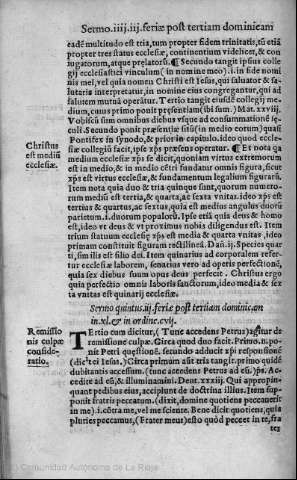 Sermo.iiij.iij.feriæ post tertiam dominicam
eadē multitudo est tria, tum propter fidem trinitatis, tū etiā
propter tres status ecclesiæ, continentium videlicet, & con
iugatorum, atque prelatorū. ¶ Secundo tangit ipsius colle
gij ecclesiastici vinculum (in nomine meo) .i. in fide nomi
nis mei, vel quia nomen Christi est Iesus, qui saluator & sa-
lutaris interpretatur, in nomine eius congregantur, qui ad
salutem mutuā operātur. Tertio tangit eiusdē collegij me
dium, cuius primo ponit presentiam (ibi sum.) Mat. xxviij.
Vobiscū sum omnibus diebus vsque ad consummationē se
culi. Secundo ponit præsentiæ situū (in medio eorum) quasi
Christus
est mediū
ecclesiæ.
Pontifex in synodo, & prior in capitulo. ideo quod ecclesia-
siæ collegiū facit, ipse xp̄s præsens operatur. ¶ Et nota qa
medium ecclesiæ xp̄s se dicit, quoniam virtus extremorum
est in medio, & in medio cœsti fundatur omnis figura, sicut
xp̄s est virtus ecclesiæ, & fundamentum legalium figurarū.
Item nota quia duo & tria quinque sunt, quorum nume-
rum mediū est tertia, & quarta, ac sexta vnitas. ideo xp̄s est
tertius & quartus, ac sextus, quia est medius angulus duorū
parietum. i. duorum populorū. Ipse etiā quia deus & homo
est, ideo vt deus & vt proximus nobis diligendus est. Item
trium statuum ecclesię xp̄s est media & quarta vnitas, ideo
primam constituit figuram rectilineā. Dan. ij. Species quar
ti, similis est filio dei. Item quinarius ad corporalem refer-
tur ecclesiæ laborem, senarius vero ad operis perfectionē,
quia sex diebus suum opus deus perfecit. Christus ergo
quia perfectio omnis laboris sanctorum, ideo media & sex
ta vnitas est quinarij ecclesiæ.
Sermo quintus.iij.feriæ post tertiam dominicam
in.xl.& in ordine.cvij.
Remissio
nis culpæ
conside-
ratio.
TErtio cum dicitur, (Tunc accedens Petrus) agitur de
remissione culpæ. Circa quod duo facit. Primo. n. po
nit Petri questionē. secundo adducit xp̄i responsionē
(dicit ei Iesus.) Circa primam aūt tria tangit. primo quidē
dubitantis accessum. (tunc accedens Petrus ad eū.) ps. Ac-
cedite ad eū, & illuminamini. Deut. xxxiij. Qui appropin-
quant pedibus eius, accipient de doctrina illius. Tem suppo
nit fratris peccatum. (dixit, domine quoties peccauerit
in me) .i. cōtra me, vel me sciente. Bene dicit quoties, quia
pluries peccamus, (Frater meus) esto quòd peccet in te, fra
ter
Comunidad Autónoma de La Rioja